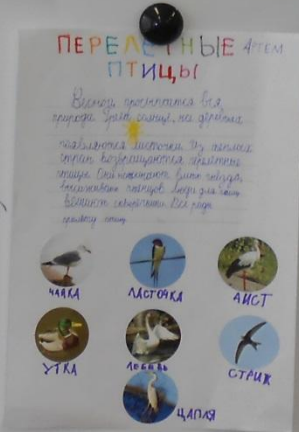 ПЕРЕЛЕТНЫЕ АРТЕМ
ПТИЦЫ
Весной просыпается вся
природа. Греет солнце, на деревьях
появляются листочки. Из теплых
стран возвращаются перелетные
птицы. Они начинают вить гнезда,
высиживать птенцов. Люди для
вешают скворечники. Все рады
прилету птиц
ЧАЙКА ЛАСТОЧКА АИСТ
УТКА ЛЕБЕДЬ СТРИЖ
ЦАПЛЯ